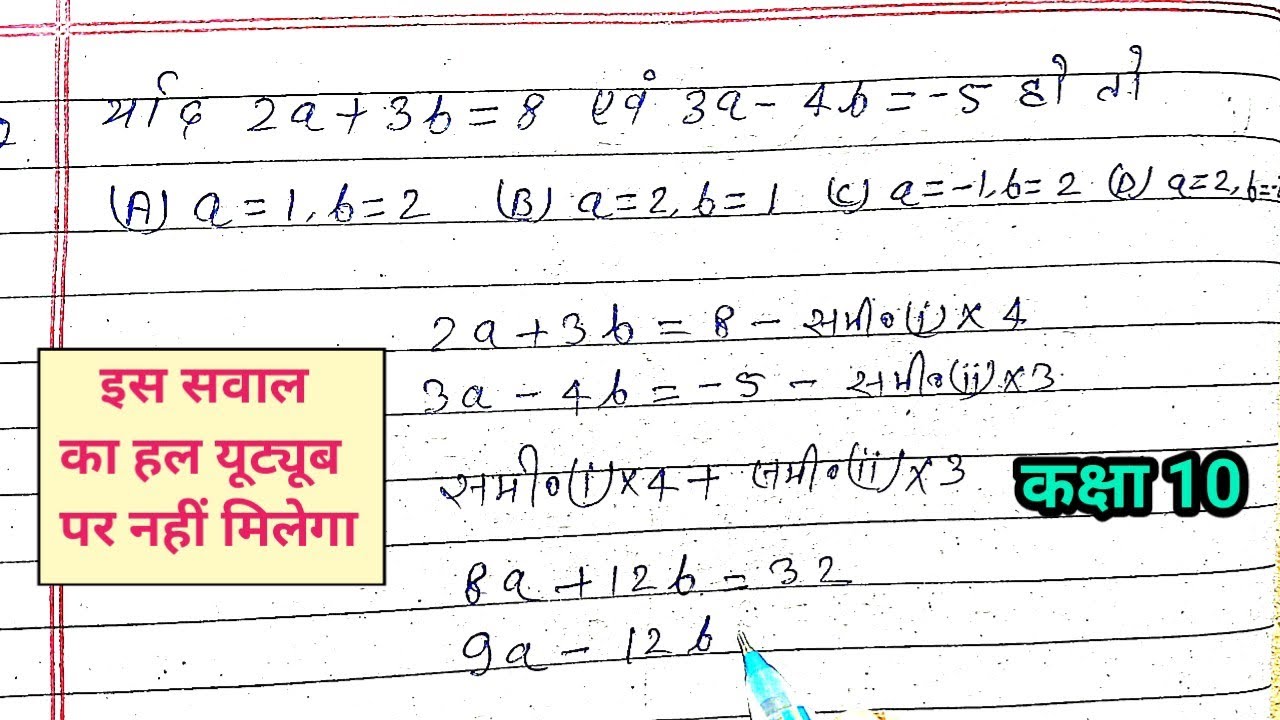 यदि 2a + 3b = 8 एवं 3a - 4b = -5 हो तो
(A) a = 1, b = 2 (B) a = 2, b = 1 (C) a = -1, b = 2 (D) a = 2, b =
2a + 3b = 8 - समी०(i) × 4
3a - 4b = -5 - समी०(ii) × 3
समी०(i) × 4 + समी०(ii) × 3
8a + 12b = 32
9a - 12b
इस सवाल
का हल यूट्यूब
पर नहीं मिलेगा
कक्षा 10